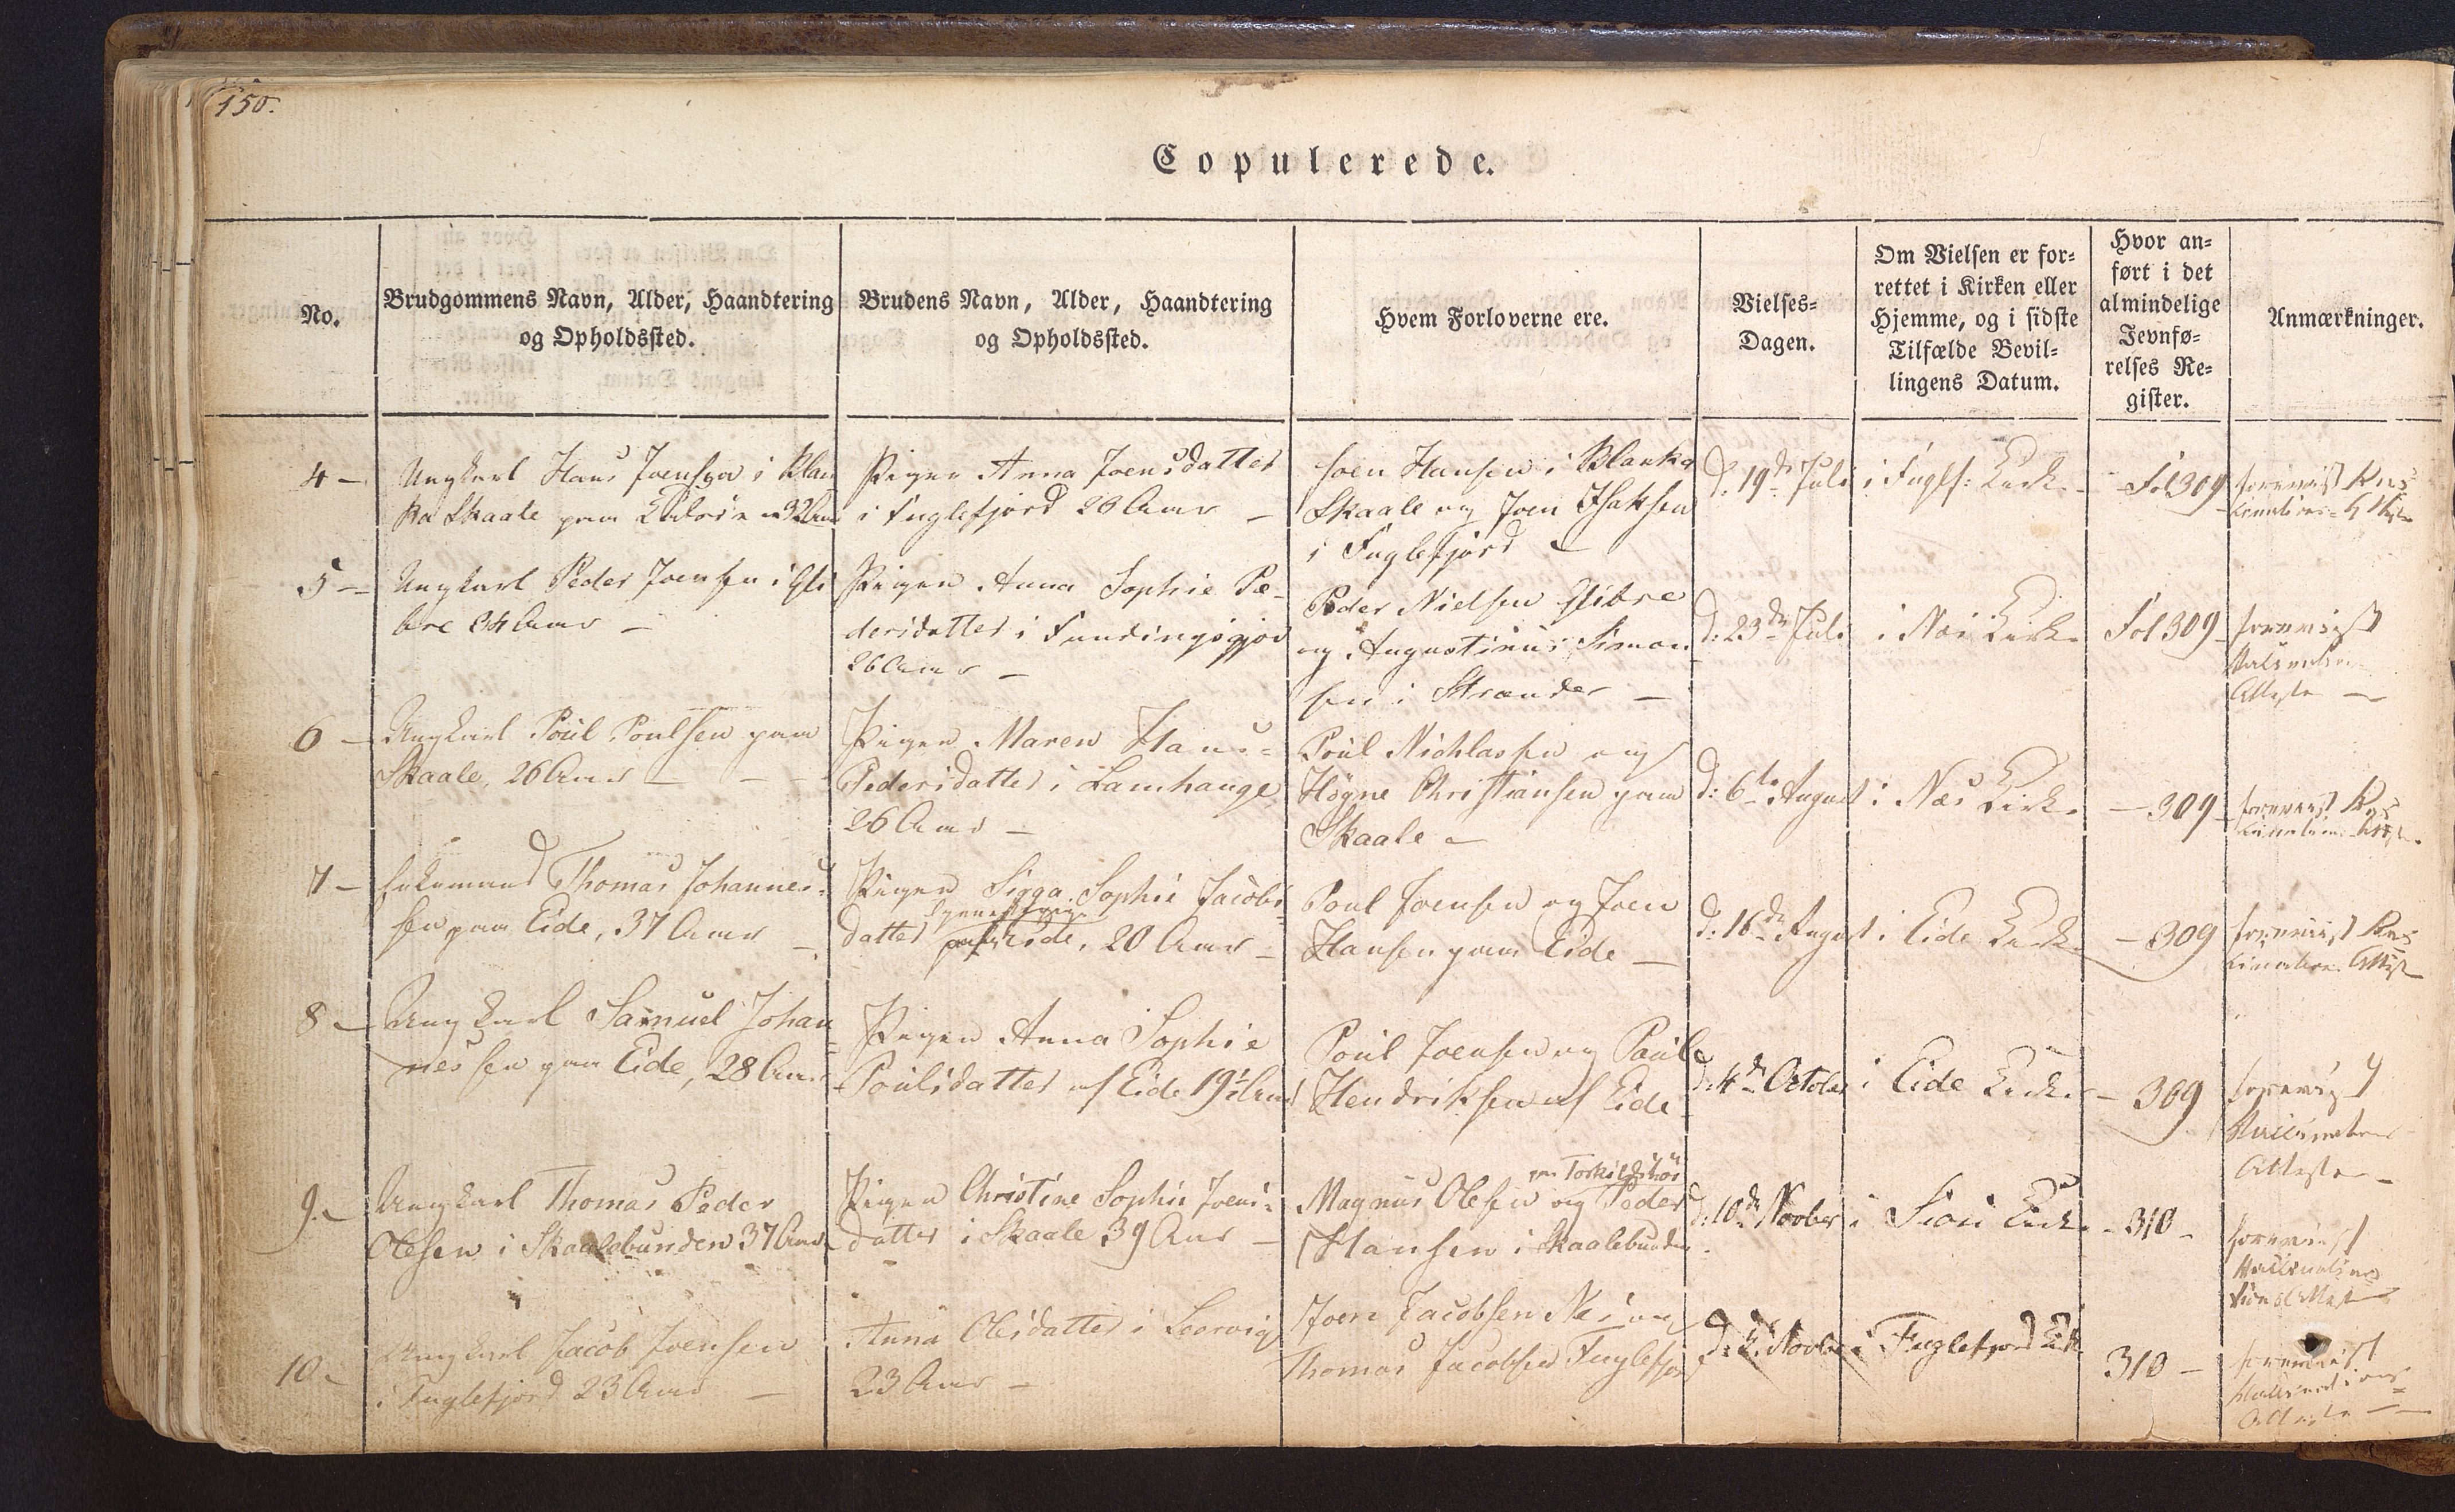 150.
Copulerede.
No.
Brudgommens Navn, Alder, Haandtering
og Opholdssted.
Brudens Navn, Alder, Haandtering
og Opholdssted.
Hvem Forloverne ere.
Vielses-
Dagen.
Om Vielsen er for-
rettet i Kirken eller
Hjemme, og i sidste
Tilfælde Bevil-
lingens Datum.
Hvor an-
ført i det
almindelige
Jevnfø-
relses Re-
gister.
Anmærkninger.
4 -
Ungkarl Hans Joensen i Blan
ka Skaale paa 32 Aar
Pigen Anna Joensdatter
i Fuglefjord 26 Aar -
Joen Hansen i Blanka
Skaale og Joen Isaksen
i Fuglefjord -
d: 19de Juli
i Fuglf: Kirke
Fol 309
foreviist Vac
cinations Attest
5 -
Ungkarl Peder Joensen i Gli
bre 34 Aar -
Pigen Anna Sophie Pe-
dersdatter i Fundingsgjor
26 Aar -
Peder Nielsen Glibre
og Augustinus Simon
sen i Strænder -
d: 23de Juli
i Næs Kirke
Fol 309
foreviist
Vaccinations
Attester -
6 -
Ungkarl Poul Poulsen paa
Skaale, 26 Aar -
Pigen Maren Hans-
Pedersdatter i Lamhauge
26 Aar -
Poul Nichlassen og
Högne Christiansen paa
Skaale -
d: 6te August
i Næs Kirke
- 309 -
foreviist Vac
cinations Attest
7 -
Enkemand Thomas Johannes-
sen paa Eide, 37 Aar -
Pigen Sigga Sophie Jacobs-
datter Eide, 20 Aar -
Poul Joensen og Joen
Hansen paa Eide -
d: 16de August
i Eide Kirke
- 309
foreviist Vac
cinations Attest
8 -
Ungkarl Samuel Johan
nessen paa Eide, 28 Aar
Pigen Anna Sophie
Poulsdatter af Eide 19½ Aar
Poul Joensen og Poul
Hendriksen af Eide
d: 4de October
i Eide Kirke
- 309
foreviist
Vaccinations
Attester -
9. -
Ungkarl Thomas Peder
Olesen i Skaalebunden 37 Aar
Pigen Christine Sophie Joens-
datter i Skaale 39 Aar -
Magnus Olesen og Peder
Hansen i Skaalebunden
d: 10de Novber
i Siov Kirke
- 310 -
foreviist
Vaccina
tions Attest
10. -
Ungkarl Jacob Joensen
i Fuglefjord 23 Aar -
Anna Olesdatter i Leervig
23 Aar -
Joen Jacobsen Næs og
Thomas Jacobsen Fuglefjor
Novber
i Fuglefjord Kirk
310 -
foreviist
Vaccinations
Attester -